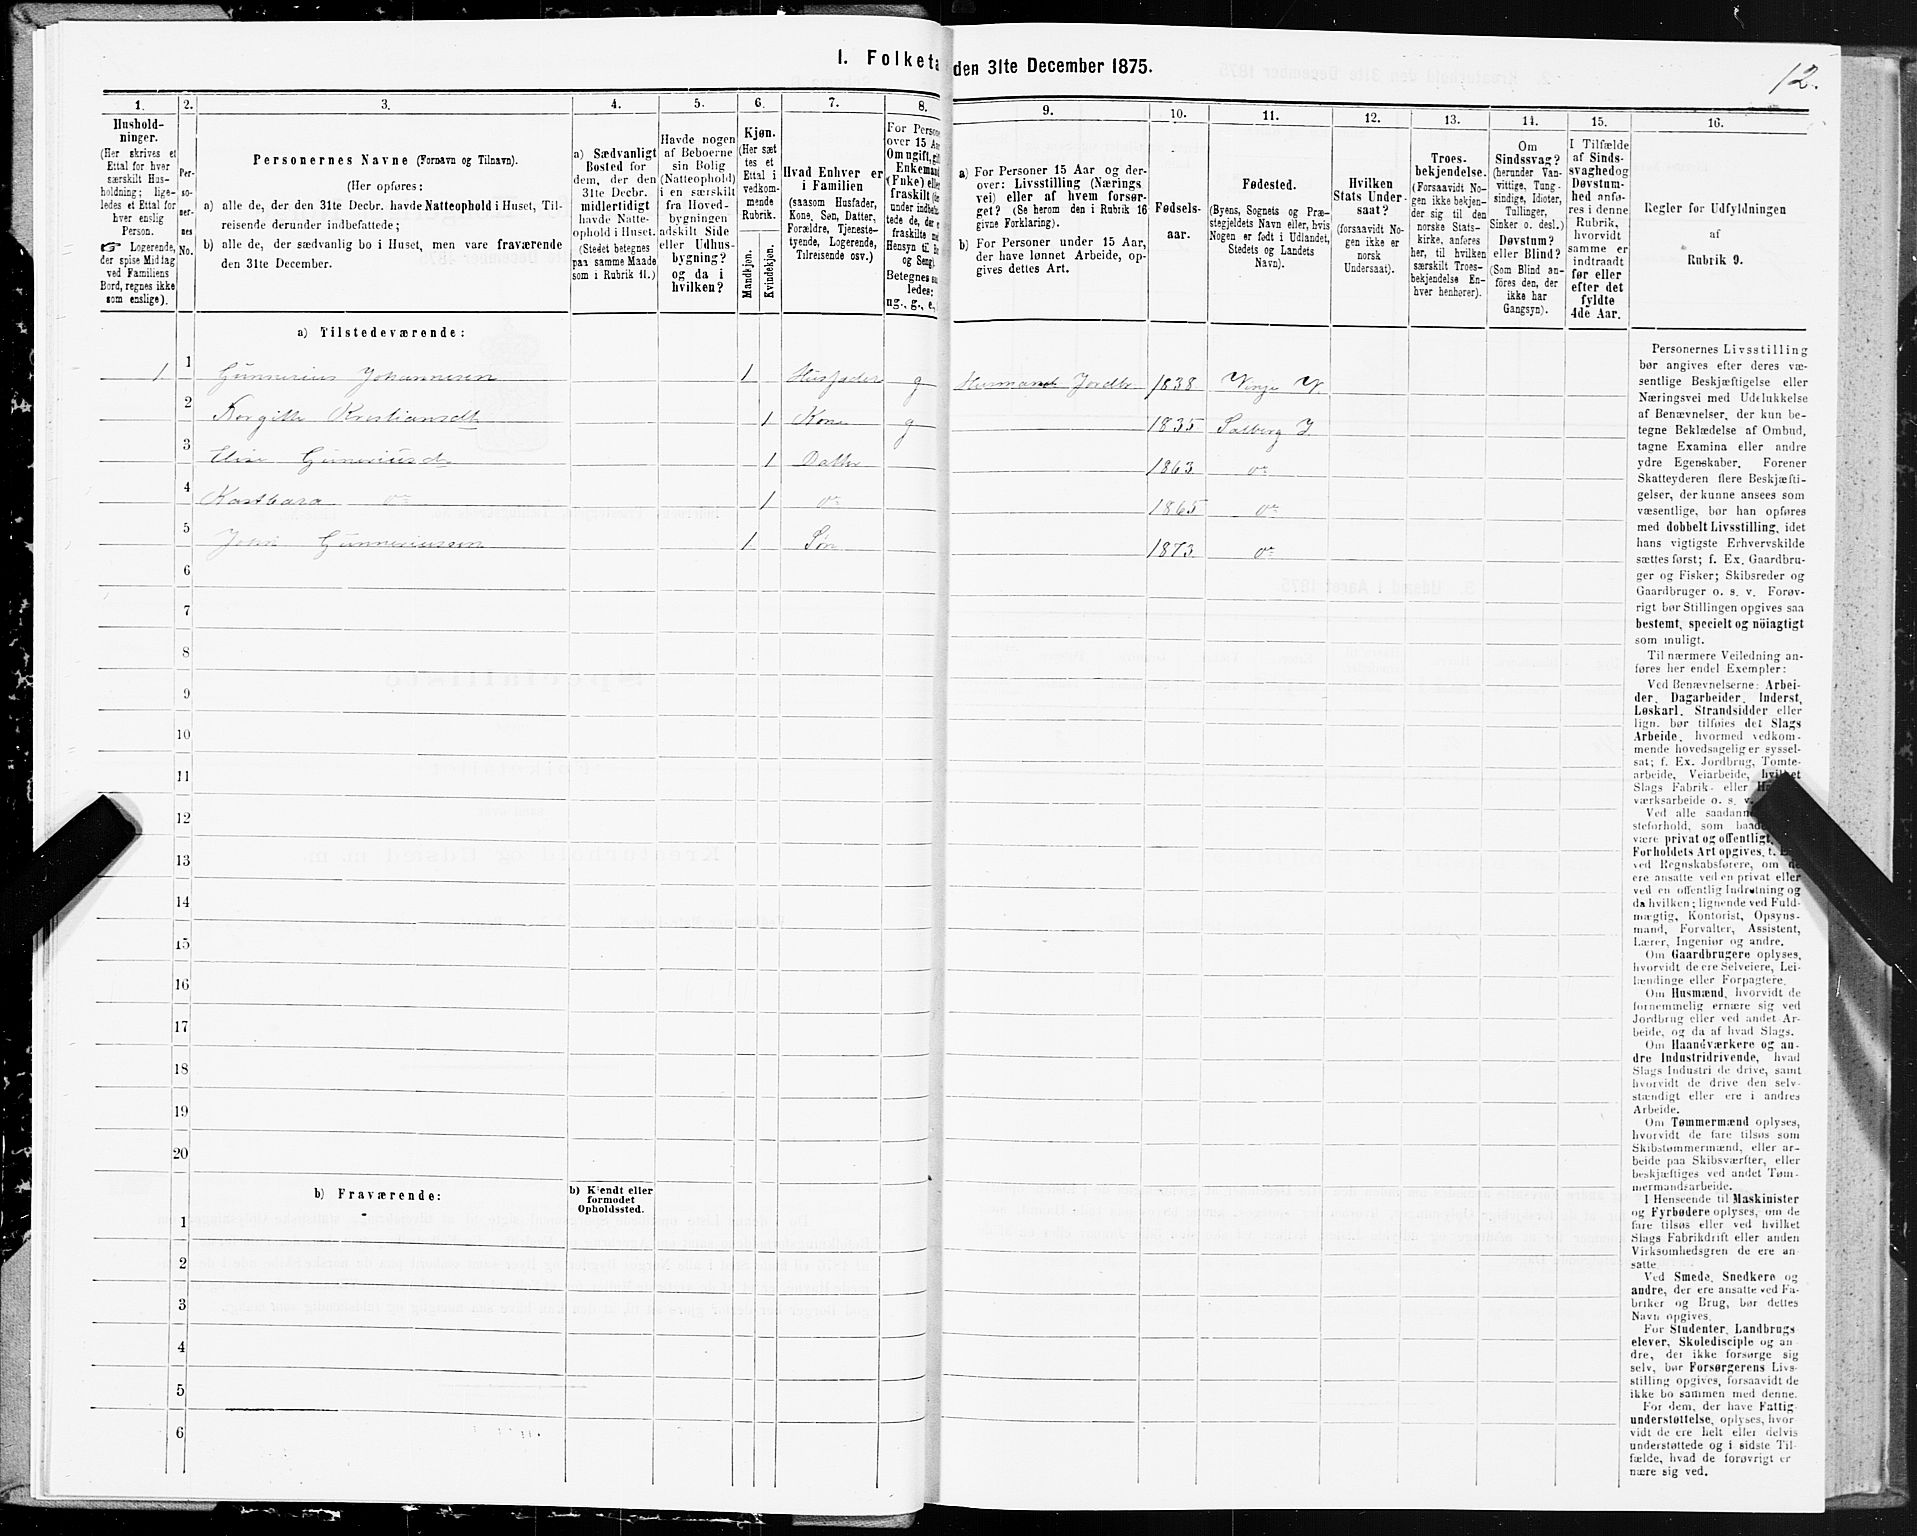 I. Folketa den 31te December 1875.
12.
1.
2.
3.
4.
5.
6.
7.
8.
9.
10.
11.
12.
13.
14.
15.
16.
Hushold-
ninger.
(Her skrives et
Ettal for hver
særskilt Hus-
holdning; lige-
ledes et Ettal for
hver enslig
Person.
☞ Logerende,
der spise Middag
ved Familiens
Bord, regnes ikke
som enslige).
Per-
so-
ner-
nes
No.
Personernes Navne (Fornavn og Tilnavn).
(Her opføres:
a) alle de, der den 31te Decbr. havde Natteophold i Huset, Til-
reisende derunder indbefattede;
b) alle de, der sædvanlig bo i Huset, men vare fraværende
den 31te December.
a) Sædvanligt
Bosted for
dem, der den
31te Decbr.
midlertidigt
havde Natte-
ophold i Huset.
(Stedet betegnes
paa samme Maade
som i Rubrik 11.)
Havde nogen
af Beboerne
sin Bolig
(Natteophold)
i en særskilt
fra Hoved-
bygningen
adskilt Side
eller Udhus-
bygning?
og da i
hvilken?
Kjøn.
(Her sæt
tes et
Ettal i
vedkom-
mende
Rubrik.
Mandkjøn.
Kvindekjøn.
Hvad Enhver er
i Familien
(saasom Husfader,
Kone, Søn, Datter,
Forældre, Tjeneste-
tyende, Logerende,
Tilreisende osv.)
For Persone
over 15 Aa
Om ugift, gif
Enkemand
(Enke) elle
fraskilt
under indbefat
tede de, der
fraskilte
Hensyn til
og Seng).
Betegnes saa
ledes:
ug., g., e.,
a) For Personer 15 Aar og der-
over: Livsstilling (Nærings
vei) eller af hvem forsør-
get? (Se herom den i Rubrik 16
givne Forklaring).
b) For Personer under 15 Aar,
der have lønnet Arbeide, op-
gives dettes Art.
Fødsels-
aar.
Fødested.
(Byens, Sognets og Præ-
stegjeldets Navn eller, hvis
Nogen er født i Udlandet,
Stedets og Landets
Navn).
Hvilken
Stats Under-
saat?
(forsaavidt No-
gen ikke er
norsk
Undersaat).
Troes-
bekjendelse.
(Forsaavidt No-
gen ikke bekjen-
der sig til den
norske Stats-
kirke, anføres
her, til hvilken
særskilt Troes-
bekjendelse En-
hver henhører).
Om
Sindssvag?
(herunder Van-
vittige, Tung-
sindige, Idioter,
Tullinger,
Sinker o. desl.)
Døvstum?
eller Blind?
(Som Blind an-
føres den, der
ikke har
Gangsyn).
I Tilfælde
af Sinds-
svaghed og
Døvstum-
hed anfø-
res i denne
Rubrik,
hvorvidt
samme er
indtraadt
før eller
efter det
fyldte
4de Aar.
Regler for Udfyldningen
af
Rubrik 9.
a) Tilstedeværende:
1 1 Gunnerius Johannesen 1 Husfader g Husmand Jordbr 1838 Vinje V
2 Kristiansdt 1 Kone g 1835 Salberg I.
3 Elise Guneriusd 1 Datter 1863 do
4 do 1 do 1865 do
5 Gunneriussen 1 Søn 1873 do
6
7
8
9
10
11
12
13
14
15
16
17
18
19
20
b) Fraværende:
b) Kjendt eller
formodet
Opholdssted.
1
2
3
4
5
6
Personernes Livsstilling
bør angives efter deres væ-
sentlige Beskjæftigelse eller
Næringsvei med Udelukkelse
af Benævnelser, der kun be-
tegne Beklædelse af Ombud,
tagne Examina eller andre
ydre Egenskaber. Forener
Skatteyderen flere Beskjæfti-
gelser, der kunne ansees som
væsentlige, bør han opføres
med dobbelt Livsstilling, idet
hans vigtigste Erhvervskilde
sættes først; f. Ex. Gaardbru-
ger og Fisker; Skibsreder og
Gaardbruger o. s. v. Forøv-
rigt bør Stillingen opgives saa
bestemt, specielt og nöiagtigt
som muligt.
Til nærmere Veiledning an-
føres her endel Exempler:
Ved Benævnelserne: Arbei-
der, Dagarbeider, Inderst,
Løskarl, Strandsidder eller
lign. bør tilføies det Slags
Arbeide, hvormed vedkom-
mende hovedsagelig er syssel-
sat; f. Ex. Jordbrug, Tomte-
arbeide, Veiarbeide, hvilket
Slags Fabrik- eller
værksarbeide o. s. v.
Ved alle saadanne
steforhold, som baade
være privat og offentligt,
Forholdets Art opgives, t.
ved Regnskabsførere, om
ere ansatte ved en privat eller
ved en offentlig Indretning og
da hvilken; lignende ved Fuld-
mægtig, Kontorist, Opsyns-
mand, Forvalter, Assistent,
Lærer, Ingeniør og andre.
Om Gaardbrugere oplyses,
hvorvidt de ere Selveiere, Lei-
lændinge eller Forpagtere.
Om Husmænd, hvorvidt de
fornemmelig ernære sig ved
Jordbrug eller ved andet Ar-
beide, og da af hvad Slags.
Om Haandværkere og an-
dre Industridrivende, hvad
Slags Industri de drive, samt
hvorvidt de drive den selv-
stændigt eller ere i andres
Arbeide.
Om Tømmermænd oplyses,
hvorvidt de fare tilsøs som
Skibstømmermænd, eller ar-
beide paa Skibsværfter, eller
beskjæftiges ved andet Tøm-
mermandsarbeide.
I Henseende til Maskinister
og Fyrbødere oplyses, om de
fare tilsøs eller ved hvilket
Slags Fabrikdrift eller anden
Virksomhedsgren de ere an-
satte
Ved Smede, Snedkere og
andre, der ere ansatte ved Fa-
briker og Brug, bør dettes
Navn opgives.
For Studenter, Landbrugs
elever, Skoledisciple og an-
dre, der ikke forsørge sig
selv, bør Forsørgerens Livs-
stilling opgives, forsaavidt de
ikke bo sammen med denne.
For dem, der have Fattig-
understøttelse, oplyses, hvor-
vidt de ere helt eller delvis
understøttede og i sidste Til-
fælde, hvad de forøvrigt er
nære sig ved.